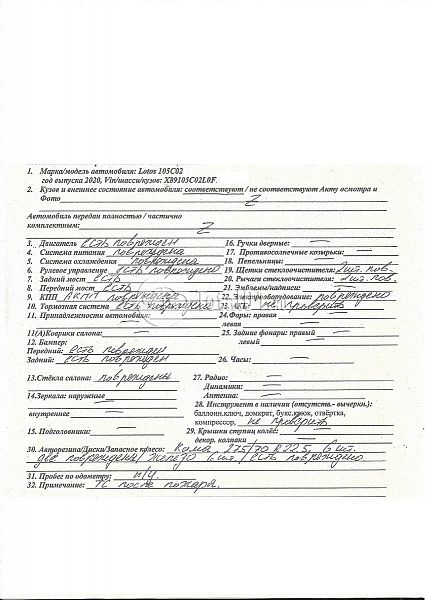 1. Марка/модель автомобиля: Lotos 105C02
год выпуска 2020, Vin/шасси/кузов: X89105C02L0F
2. Кузов и внешнее состояние автомобиля: соответствуют / не соответствуют Акту осмотра и
Фото Z
Автомобиль передан полностью / частично
комплектным: Z
3. Двигатель есть поврежден
4. Система питания повреждена
5. Система охлаждения повреждена
6. Рулевое управление есть повреждено
7. Задний мост есть
8. Передний мост есть
9. КПП АКПП повреждена
10. Тормозная система есть повреждена
11. Принадлежности автомобиля:
11(А)Коврики салона: —
12. Бампер:
Передний: есть поврежден
Задний: есть поврежден
13.Стёкла салона: повреждены
14.Зеркала: наружные —
внутреннее —
15. Подголовники: —
16. Ручки дверные: —
17. Противосолнечные козырьки: —
18. Пепельницы: —
19. Щетки стеклоочистителя: 2шт. пов.
20. Рычаги стеклоочистителя: 2шт. пов.
21. Эмблемы/надписи: —
22. Электрооборудование повреждено
не проверить
24.Фары: правая —
левая —
25. Задние фонари: правый —
левый —
26. Часы: —
27. Радио: —
Динамики: —
Антенна: —
28. Инструмент в наличии (отсутств.- вычерки.):
баллонн.ключ, домкрат, букс.крюк, отвёртка,
компрессор, не проверить
29. Крышки ступиц колёс: —
декор. колпаки —
30. Авторезина/Диски/Запасное колесо: Кама 275/70 R22,5 6 шт.
две повреждены/железо 6 шт./есть повреждено
31. Пробег по одометру: н/у.
32. Примечание: ТС после пожара.